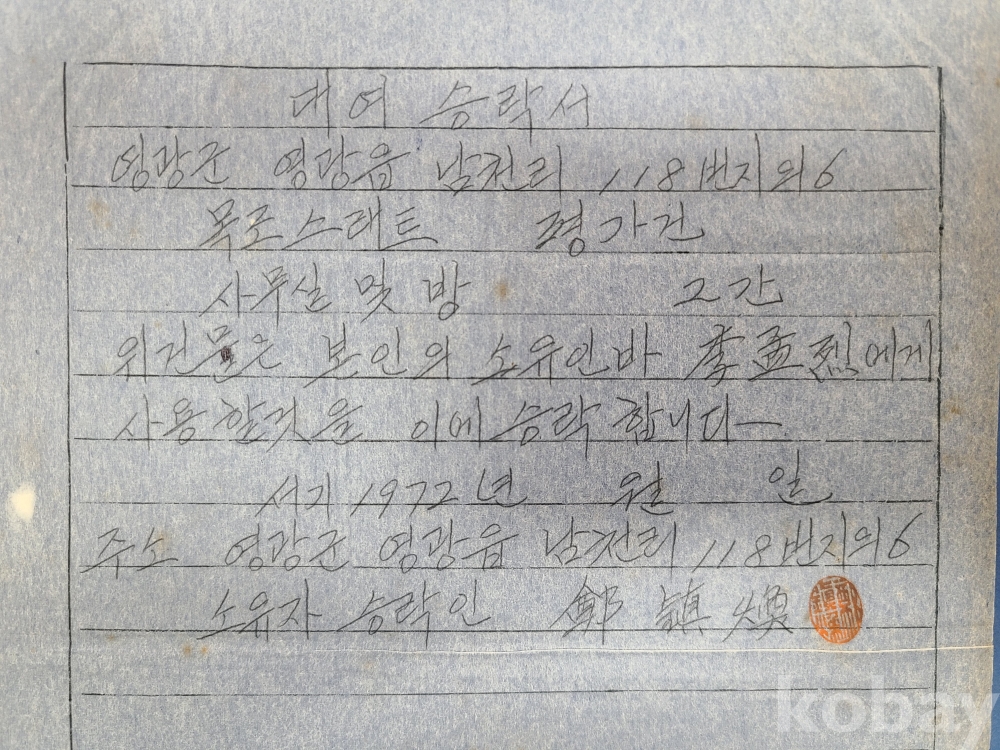 대여 승락서
영광군 영광읍 남천리 118번지의6
목조스래트 평가건
사무실 및 방 2간
위건물은 본인의 소유인바 李孟烈에게
사용할것을 이에 승락합니다
서기 1972년 월 일
주소 영광군 영광읍 남천리 118번지의6
소유자 승락인 鄭鎭煥
kobay